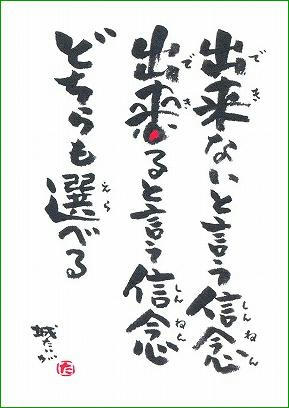 出来ないと言う信念
出来ると言う信念
どちらも選べる
城たいが